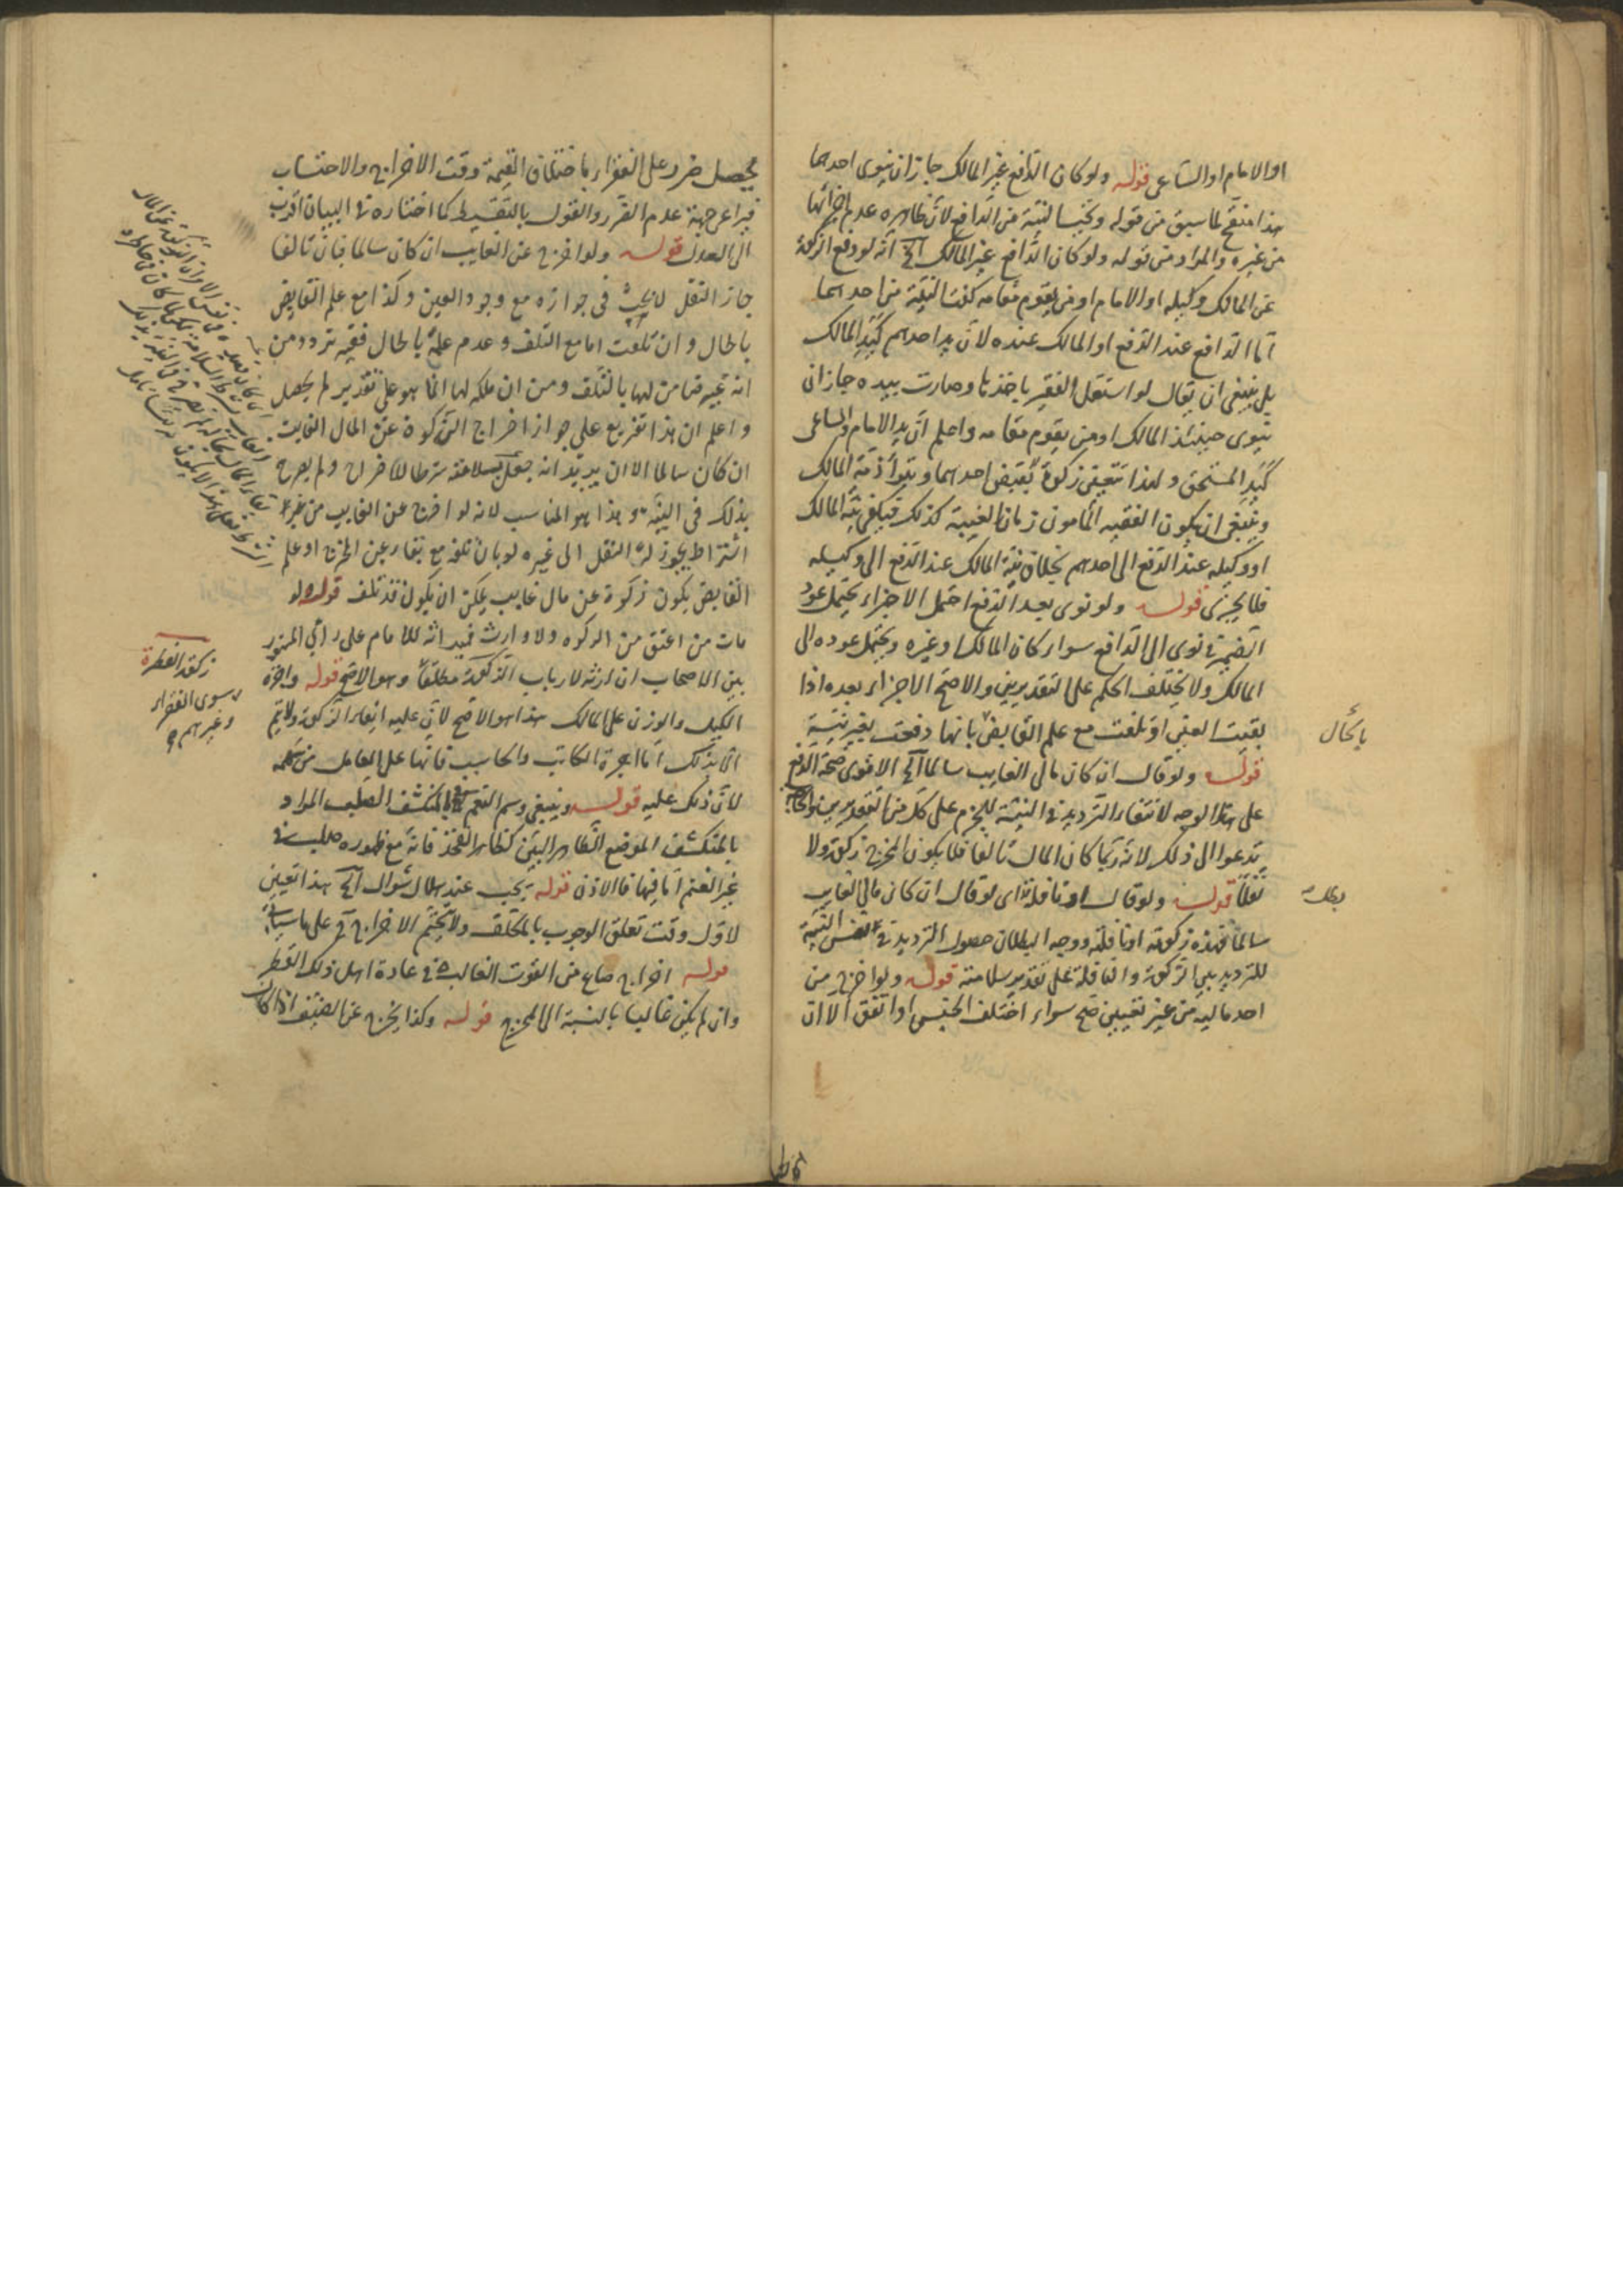 او الامام او الساعى قوله ولو كان الدافع غير المالك جاز ان ينوى احدهما
هذا منقح لما سبق من قوله وتجب النية من الدافع لان ظاهره عدم اجزائها
من غيره والمراد من قوله ولو كان الدافع غير المالك الخ انه لو دفع الزكوة
عن المالك وكيله او الامام او من يقوم مقامه كفت النية من احدهما
اما الدافع عند الدفع او المالك عنده لان يد احدهم كيد المالك
بل ينبغى ان يقال لو استقل الفقير باخذها وصارت بيده جاز ان
ينوى حينئذ المالك او من يقوم مقامه واعلم ان يد الامام والساعى
كيد المستحق ولهذا تتعين زكوة بقبض احدهما وتبرأ ذمة المالك
وينبغى ان يكون الفقيه المأمون زمان الغيبة كذلك فيكفى نية المالك
او وكيله عند الدفع الى احدهم بخلاف نية المالك عند الدفع الى وكيله
فلا يجزى قوله ولو نوى بعد الدفع احتمل الاجزاء يحتمل عود
الضمير فى نوى الى الدافع سواء كان المالك او غيره ويحتمل عوده الى
المالك ولا يختلف الحكم على التقديرين والاصح الاجزاء بعده اذا
بقيت العين او تلفت مع علم القابض بانها دفعت بغير نية
بالحال
قوله ولو قال ان كان مالى الغايب سالما الخ الاقوى صحة الدفع
على هذا الوجه لانتفاء الترديد فى النية للجزم على كل من التقديرين والحاجة
تدعوا الى ذلك لانه ربما كان المال تالفا فلا يكون المخرج زكوة ولا
نفلا قوله ولو قال او نافلة اى لو قال ان كان مالى الغايب
بطل
سالما فهذه زكوته او نافلة ووجه البطلان حصول الترديد فى نفس النية
للترديد بين الزكوة والنافلة على تقدير سلامته قوله ولو اخرج من
احد ماليه من غير تعيين صح سواء اختلف الجنس او اتفق الا ان
يحصل ضرر على الفقراء باختلاف القيمة وقت الاخراج والاحتساب
فيراعى جهة عدم الضرر والقول بالتقسيط كما اختاره فى البيان اقرب
الى العدل قوله ولو اخرج عن الغايب ان كان سالما فبان تالفا
جاز النقل لا بحث فى جوازه مع وجود العين وكذا مع علم القابض
بالحال وان تلفت اما مع التلف وعدم علمه بالحال ففيه تردد من
انه غير ضامن لها بالتلف ومن ان ملكه لها انما هو على تقدير لم يحصل
واعلم ان هذا تفريع على جواز اخراج الزكوة عن المال الغايب
ان كان سالما الا ان يريد انه جعل سلامته شرطا للاخراج ولم يصرح
بذلك فى النية وهذا هو المناسب لانه لو اخرج عن الغايب من غير
اشتراط يجوز له النقل الى غيره لو بان تلفه مع بقاء عين المخرج او علم
القابض بكون زكوة عن مال غايب يمكن ان يكون قد تلف قوله لو
مات من اعتق من الزكوه ولا وارث فميراثه للامام على راى المشهور
بين الاصحاب ان ارثه لارباب الزكوة مطلقا وهو الاصح قوله واجرة
الكيل والوزن على المالك هذا هو الاصح لان عليه ايفاء الزكوة ولا يتم
الا بذلك اما اجرة الكاتب والحاسب فانها على العامل من سهمه
لان ذلك عليه قوله وينبغى وسم النعم فى المنكشف الصلب المراد
بالمنكشف الموضع الظاهر البين كظاهر الفخذ فانه مع ظهوره صلب فى
غير الغنم اما فيها فالاذن قوله يجب عند هلال شوال الخ هذا تعيين
لاول وقت تعلق الوجوب بالمكلف ولا يتحتم الاخراج فى على ما سياتى
قوله اخراج صاع من القوت الغالب فى عادة اهل ذلك القطر
وان لم يكن غالبا بالنسبة الى المخرج قوله وكذا يخرج عن الضيف اذا كان
زكوة الفطرة